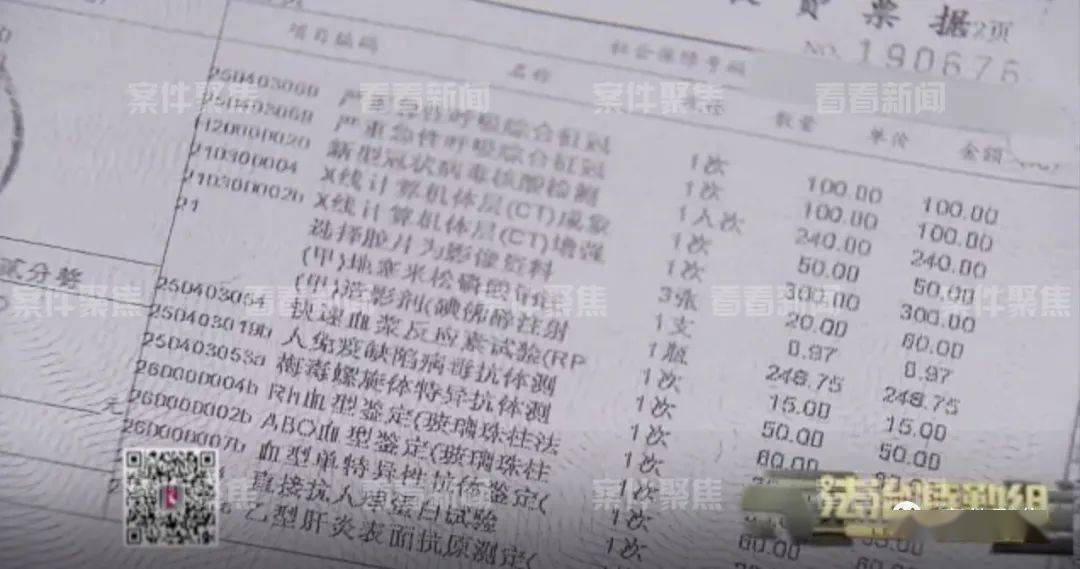 费票据2页
NO.190676
项目编码 名称 社会保障号码
数量 单价 金额
250403060 严重急性呼吸综合征冠 1次 100.00 100.00
250403060 严重急性呼吸综合征冠 1次 100.00 100.00
新型冠状病毒核酸检测 1人次 240.00 240.00
210300004 X线计算机体层(CT)成象 1次 50.00 50.00
210300002b X线计算机体层(CT)增强 1次 300.00 300.00
21 选择胶片为影像资料 3张 20.00 60.00
(甲)地塞米松磷酸钠注 1支 0.97 0.97
(甲)造影剂(碘佛醇注射 1瓶 248.75 248.75
250403054 快速血浆反应素试验(RP 1次 15.00 15.00
250403019b 人免疫缺陷病毒抗体测 1次 50.00 50.00
250403053a 梅毒螺旋体特异抗体测 1次 60.00
260000004b Rh血型鉴定(玻璃珠柱法 1次
260000002b ABO血型鉴定(玻璃珠柱 1次
260000007b 血型单特异性抗体鉴定( 1次
直接抗人球蛋白试验
乙型肝炎表面抗原测定( 1次 60.00 60.00
贰分整
元
案件聚焦 看看新闻 案件聚焦 看看新闻
看看新闻 案件聚焦 看看新闻 案件聚焦
案件聚焦 看看新闻 案件聚焦 看看新闻